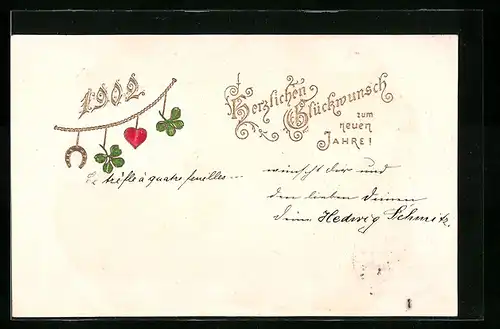 1902
Herzlichen
Glückwunsch
zum
neuen
JAHRE!
Le trèfle à quatre feuilles...
wünscht dir und
den lieben Deinen
deine Hedwig Schmitz.